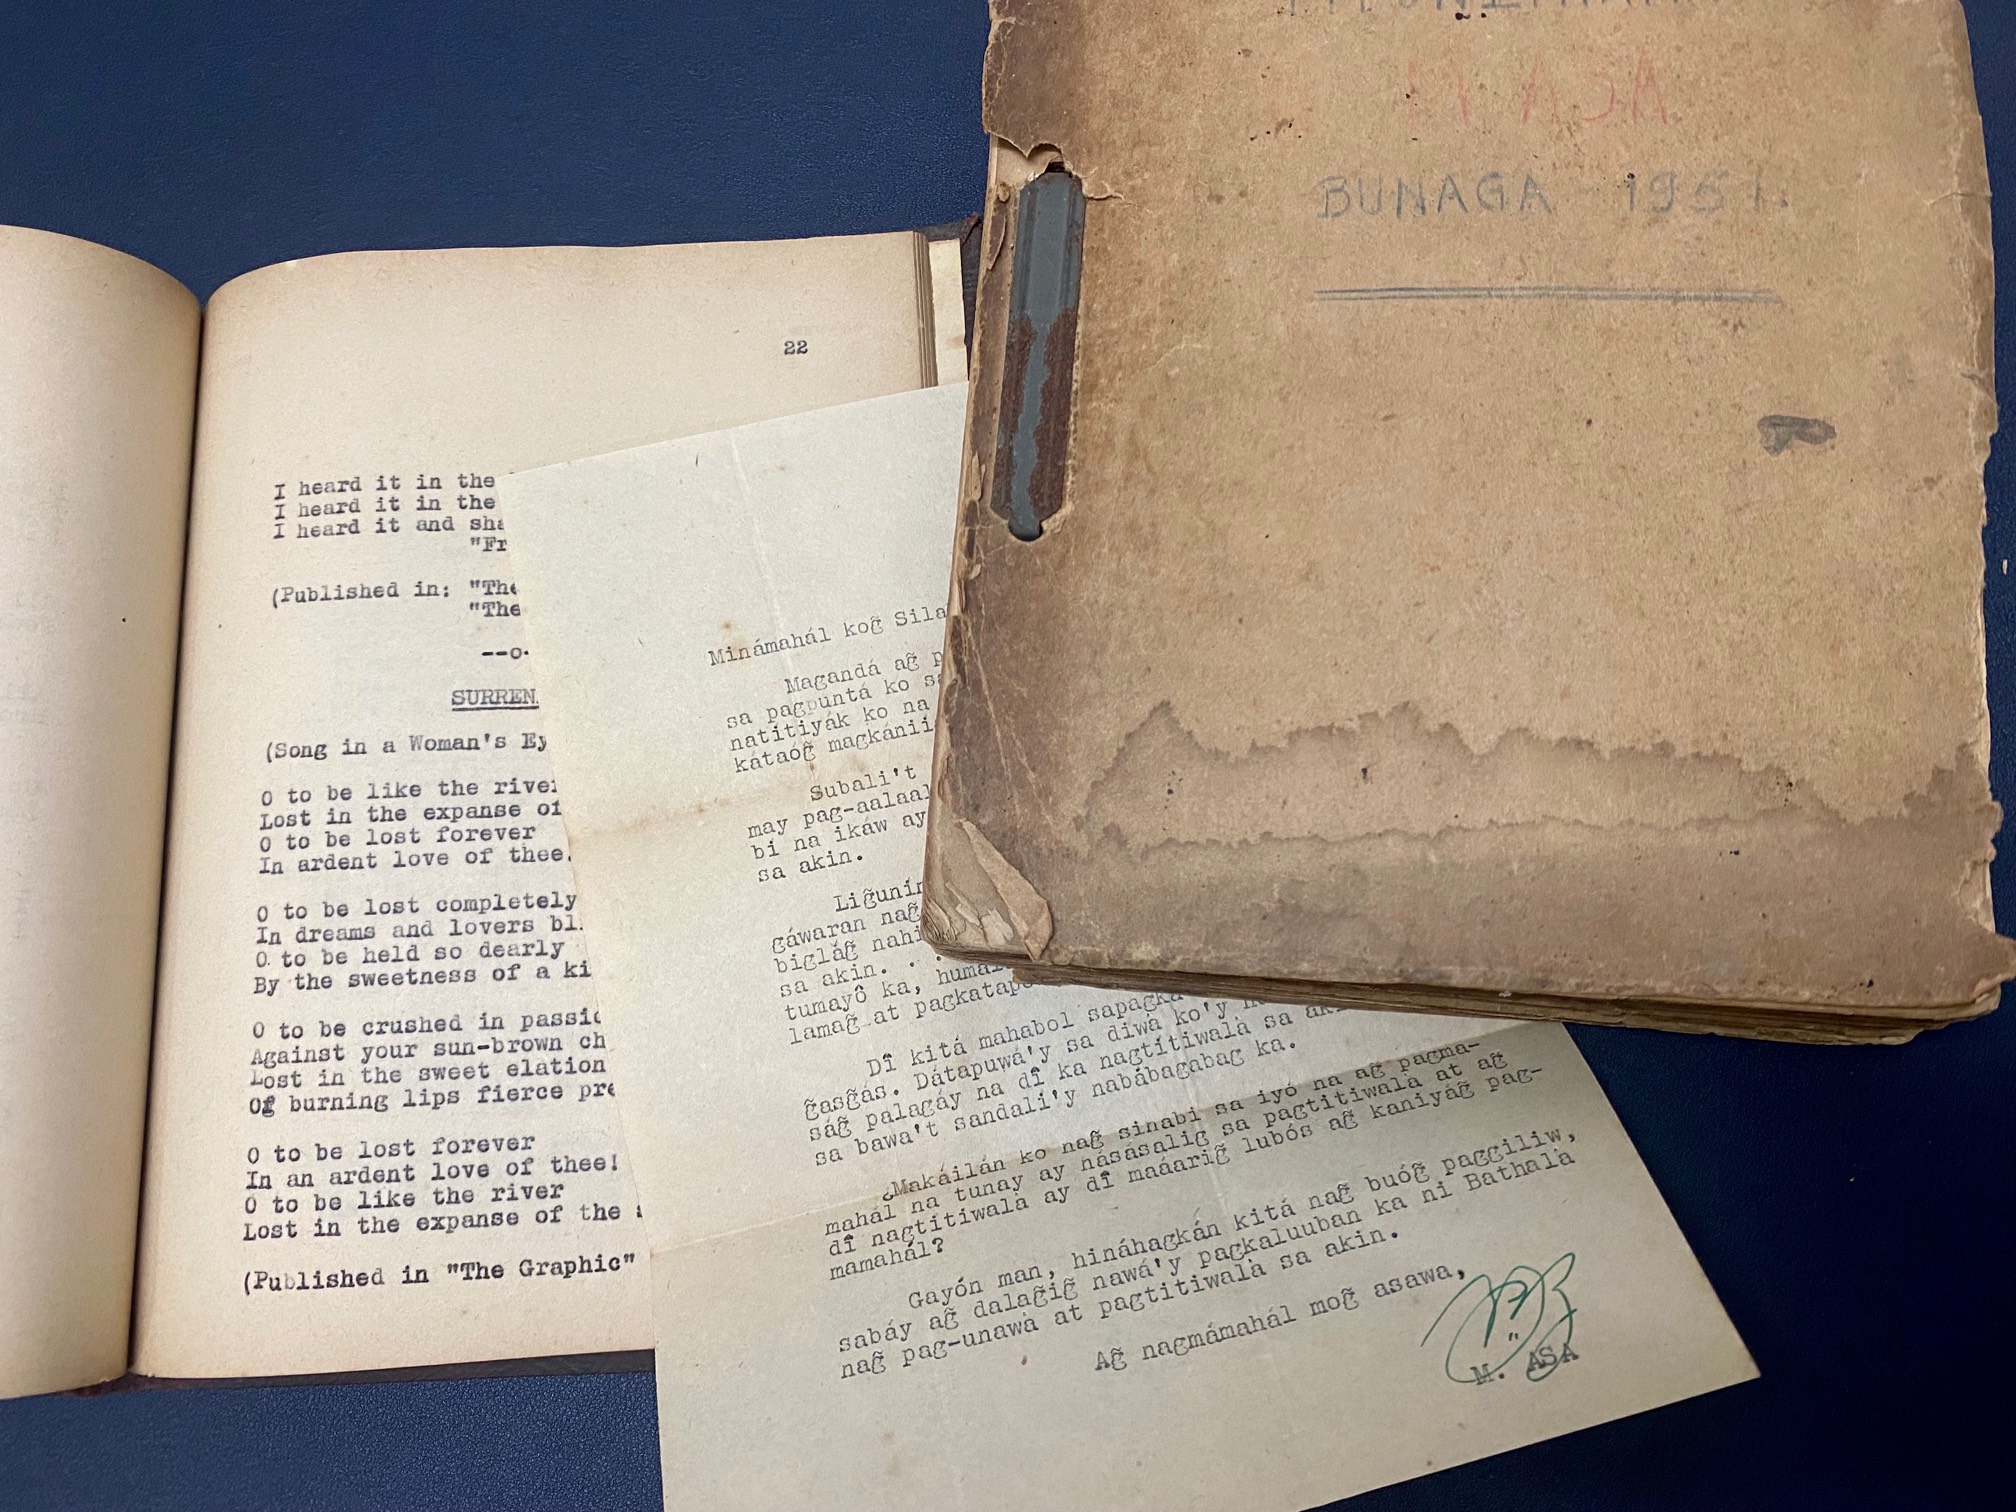 22
I heard it in the
I heard it in the
I heard it and sha
"Fr
(Published in: "The
"The
--o-
SURREN
(Song in a Woman's Ey
O to be like the river
Lost in the expanse of
O to be lost forever
In ardent love of thee.
O to be lost completely
In dreams and lovers bl
O to be held so dearly
By the sweetness of a ki
O to be crushed in passio
Against your sun-brown ch
Lost in the sweet elation
Of burning lips fierce pre
O to be lost forever
In an ardent love of thee!
O to be like the river
Lost in the expanse of the
(Published in "The Graphic"
Minámahál kog̃ Sila
Magandá ag̃ p
sa pagpuntá ko sa
natitiyák ko na
kátaóg̃ magkánii
Subali't
may pag-aalaal
bi na ikaw ay
sa akin.
Lig̃unín
gáwaran nag̃
biglág̃ nahi
sa akin. . .
tumayô ka, humal
lamag̃ at pagkatapo
Dî kitá mahabol sapagka
g̃asg̃ás. Dátapuwá'y sa diwà ko'y na
ság̃ palagáy na dî ka nagtitiwalà sa aki
sa bawa't sandali'y nabábagabag ka.
¿Makáilán ko nag̃ sinabi sa iyó na ag̃ pagma-
mahál na tunay ay násásalig sa pagtitiwalà at ag̃
dî nagtitiwalà ay dî maáarig̃ lubós ag̃ kaniyág̃ pag-
mamahál?
Gayón man, hináhagkán kitá nag̃ buóg̃ paggiliw,
sabáy ag̃ dalag̃ig̃ nawá'y pagkaluuban ka ni Bathalà
nag̃ pag-unawà at pagtitiwalà sa akin.
Ag̃ nagmámahál mog̃ asawa,
M. ASA
M ASA
BUNAGA - 1951.